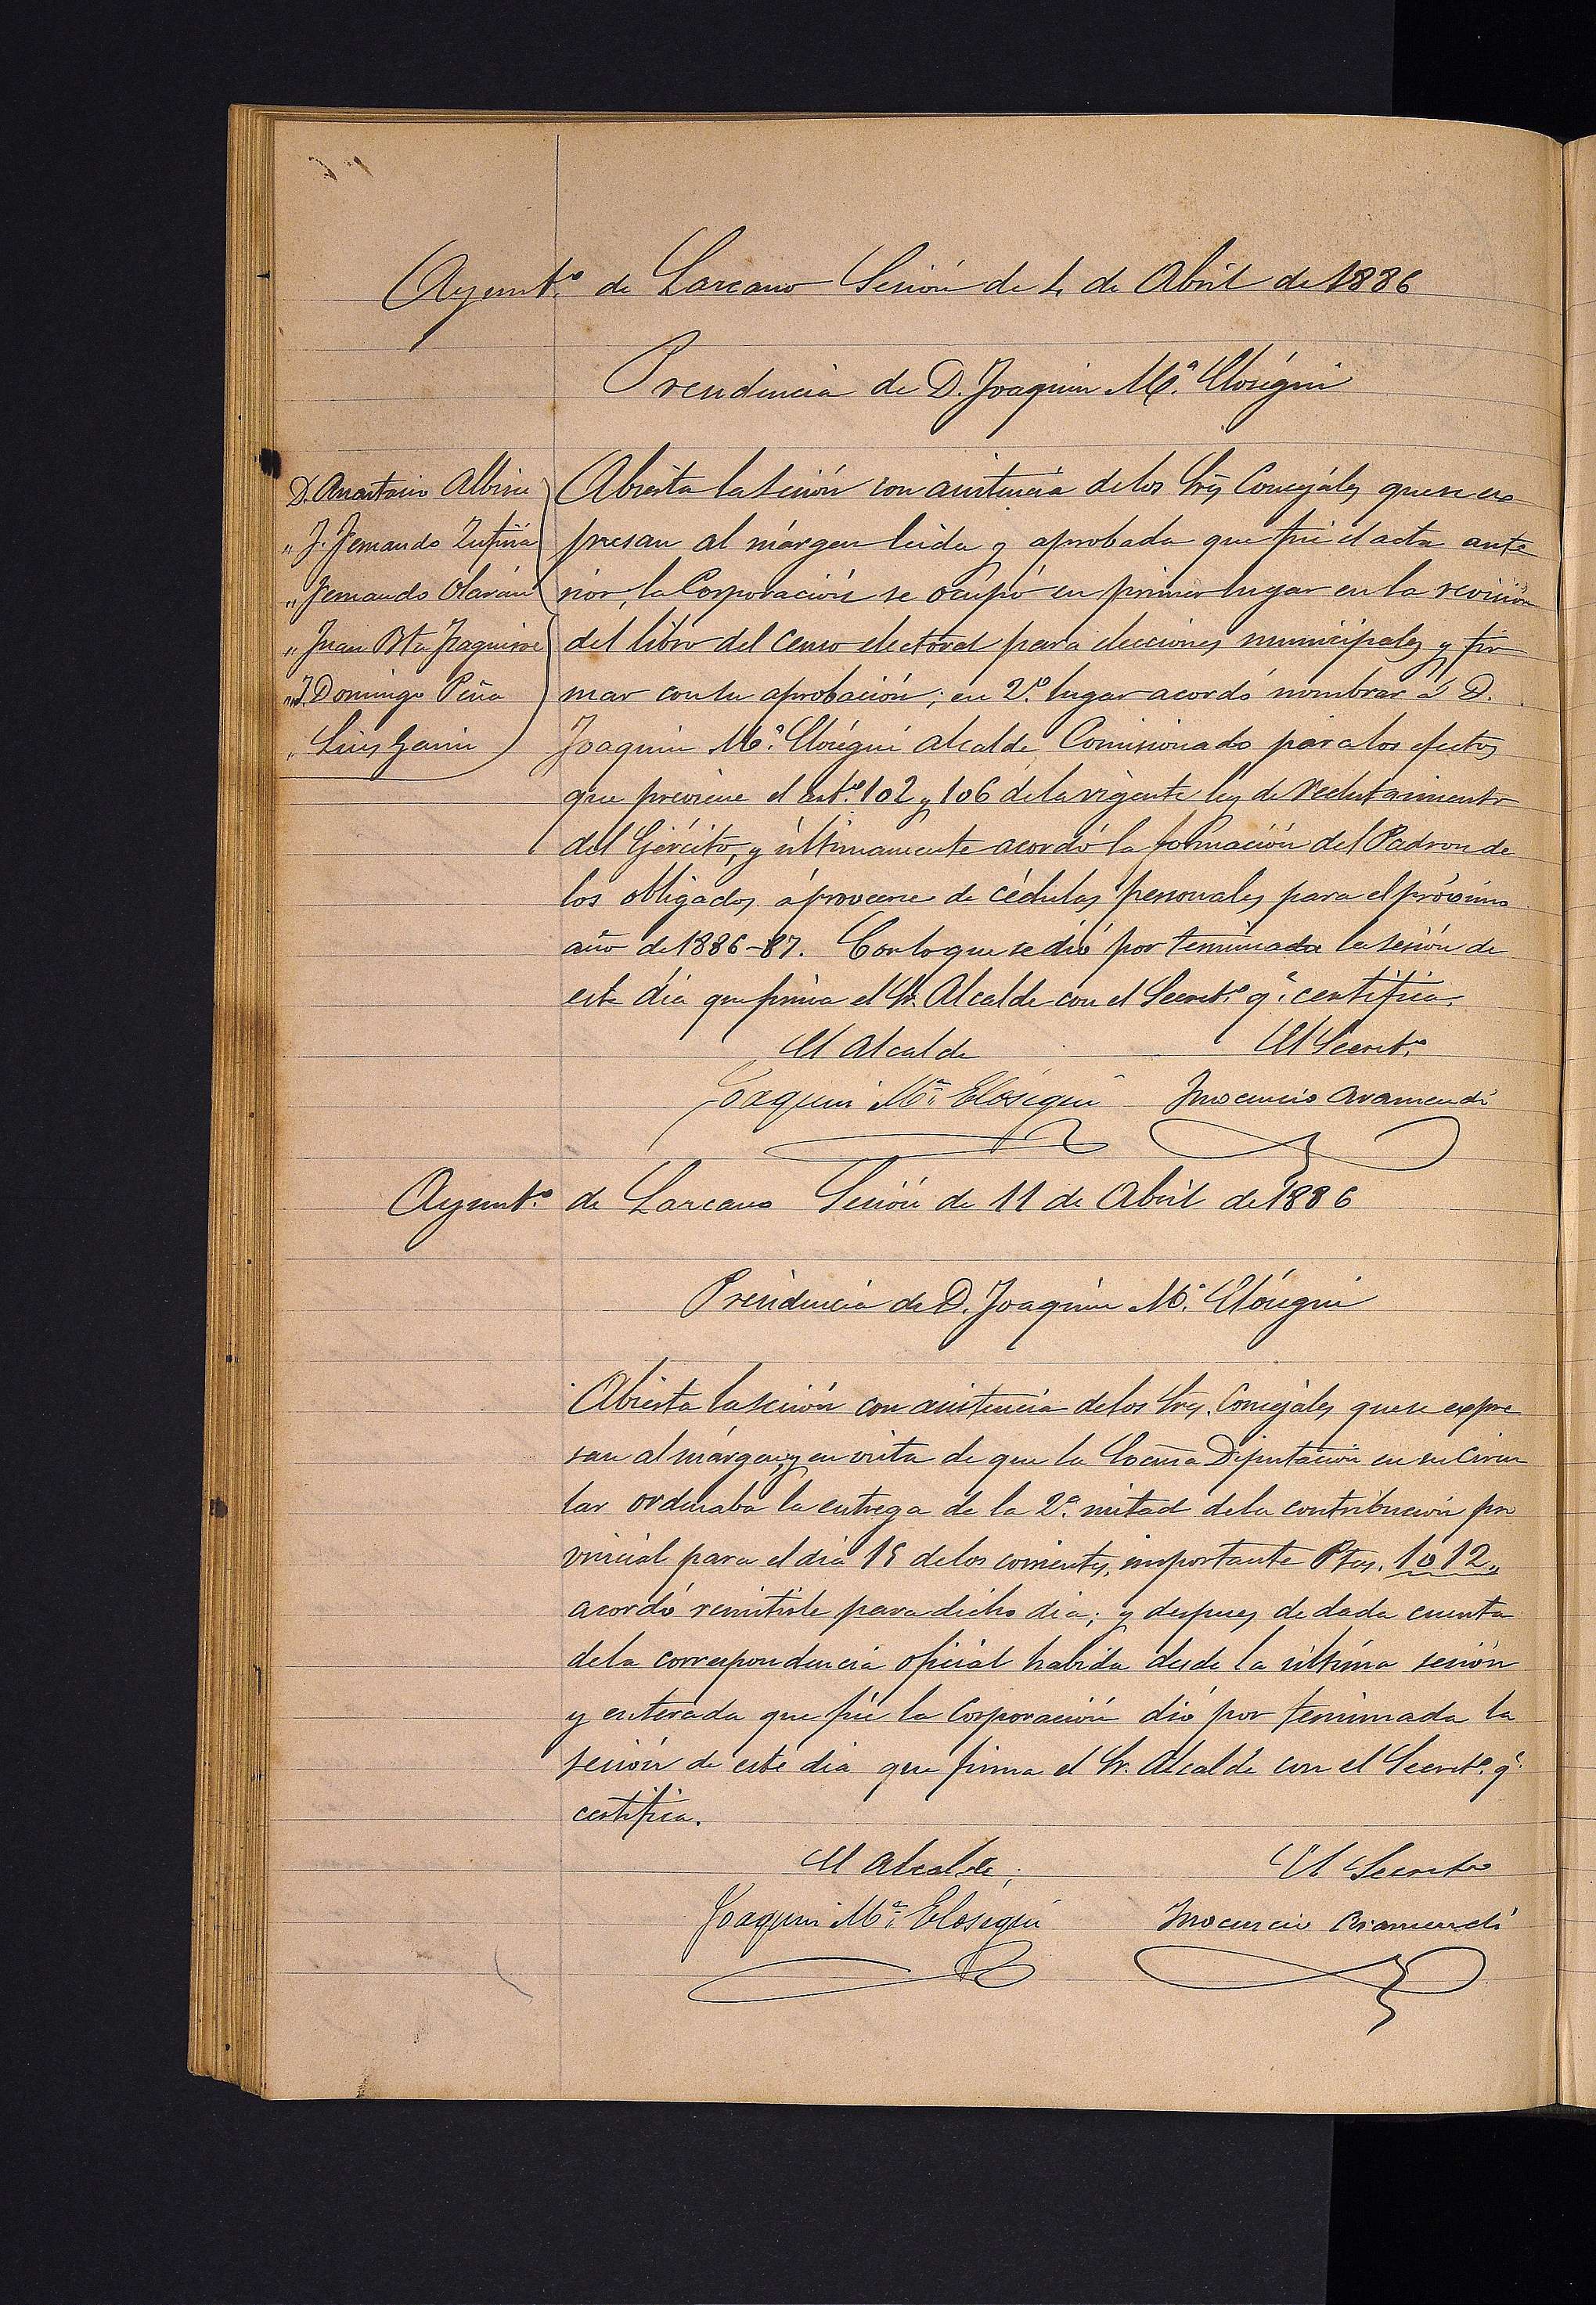 Ayunt.º de Lazcano Sesión de 4 de Abril de 1886
Presidencia de D. Joaquin M.ª Elósegui
D. Anastasio Albisu
" J. Fernando Zufiria
" Fernando Olarán
" Juan Bta Iraguirre
" J. Domingo Peña
" Luis Garin
Abierta la sesión con asistencia de los Sres Concejáles que se ex
presan al márgen leida y aprobada que fué el acta ante
rior, la Corporación se ocupó en primer lugar en la revisión
del libro del censo electoral para elecciones municipales y fir
mar con su aprobación; en 2.º lugar acordó nombrar á D.
Joaquin M.ª Elósegui Alcalde Comisionado para los efectos
que previene el art.º 102 y 106 de la vigente ley de Reclutamiento
del Ejército, y últimamente acordó la formación del Padron de
los obligados á proveerse de cédulas personales para el próximo
año de 1886-87. Con lo que se dió por terminada la sesión de
este dia que firma el Sr. Alcalde con el Secret.º q.e certifica.
El Alcalde El Secret.º
Joaquin M.ª Elosegui Inocencio Aramendi
Ayunt.º de Lazcano Sesión de 11 de Abril de 1886
Presidencia de D. Joaquin M.ª Elósegui
Abierta la sesión con asistencia de los Sres. Concejáles que se expre
san al márgen, y en vista de que la Excma Diputación en su Circu
lar ordenaba la entrega de la 2.ª mitad de la contribución pro
vincial para el dia 15 de los corrientes, importante Ptas. 1012"
acordó remitirle para dicho dia; y despues de dada cuenta
de la correspondencia oficial habida desde la última sesión
y enterada que fué la Corporación dió por terminada la
sesión de este dia que firma el Sr. Alcalde con el Secret.º q.e
certifica.
El Alcalde; El Secreto
Joaquin M.ª Elosegui Inocencio Aramendi